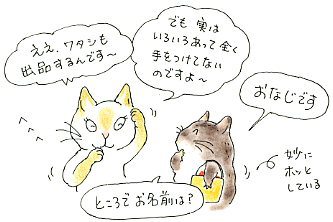 ええ、ワタシも
出品するんです〜
でも 実は
いろいろあって全く
手をつけてない
のですよ〜
おなじです
ところでお名前は?
妙に
ホッと
している